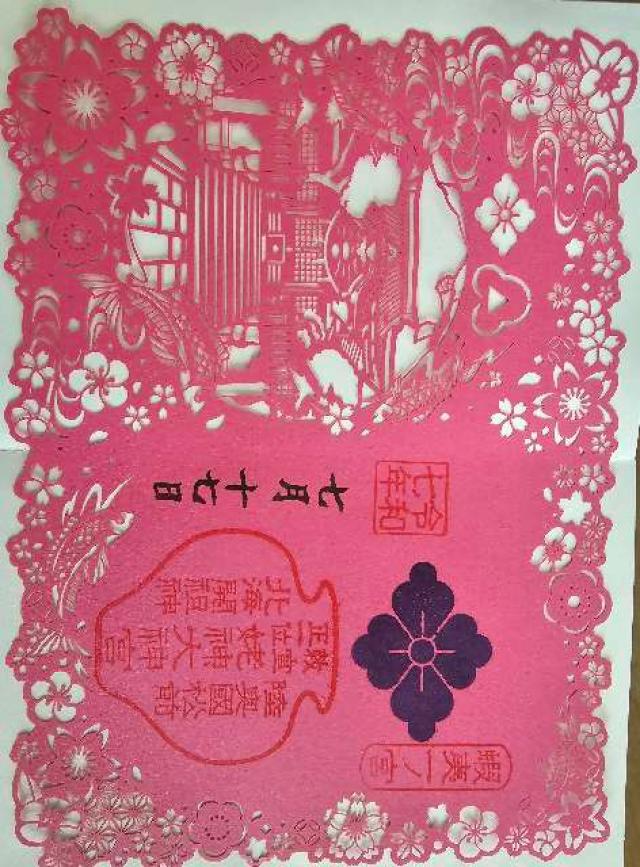 蝦夷一ノ宮
陸奥國松前
勅宣
正一位
姥神大神宮
北海開祖神
令和
七年
七月十七日